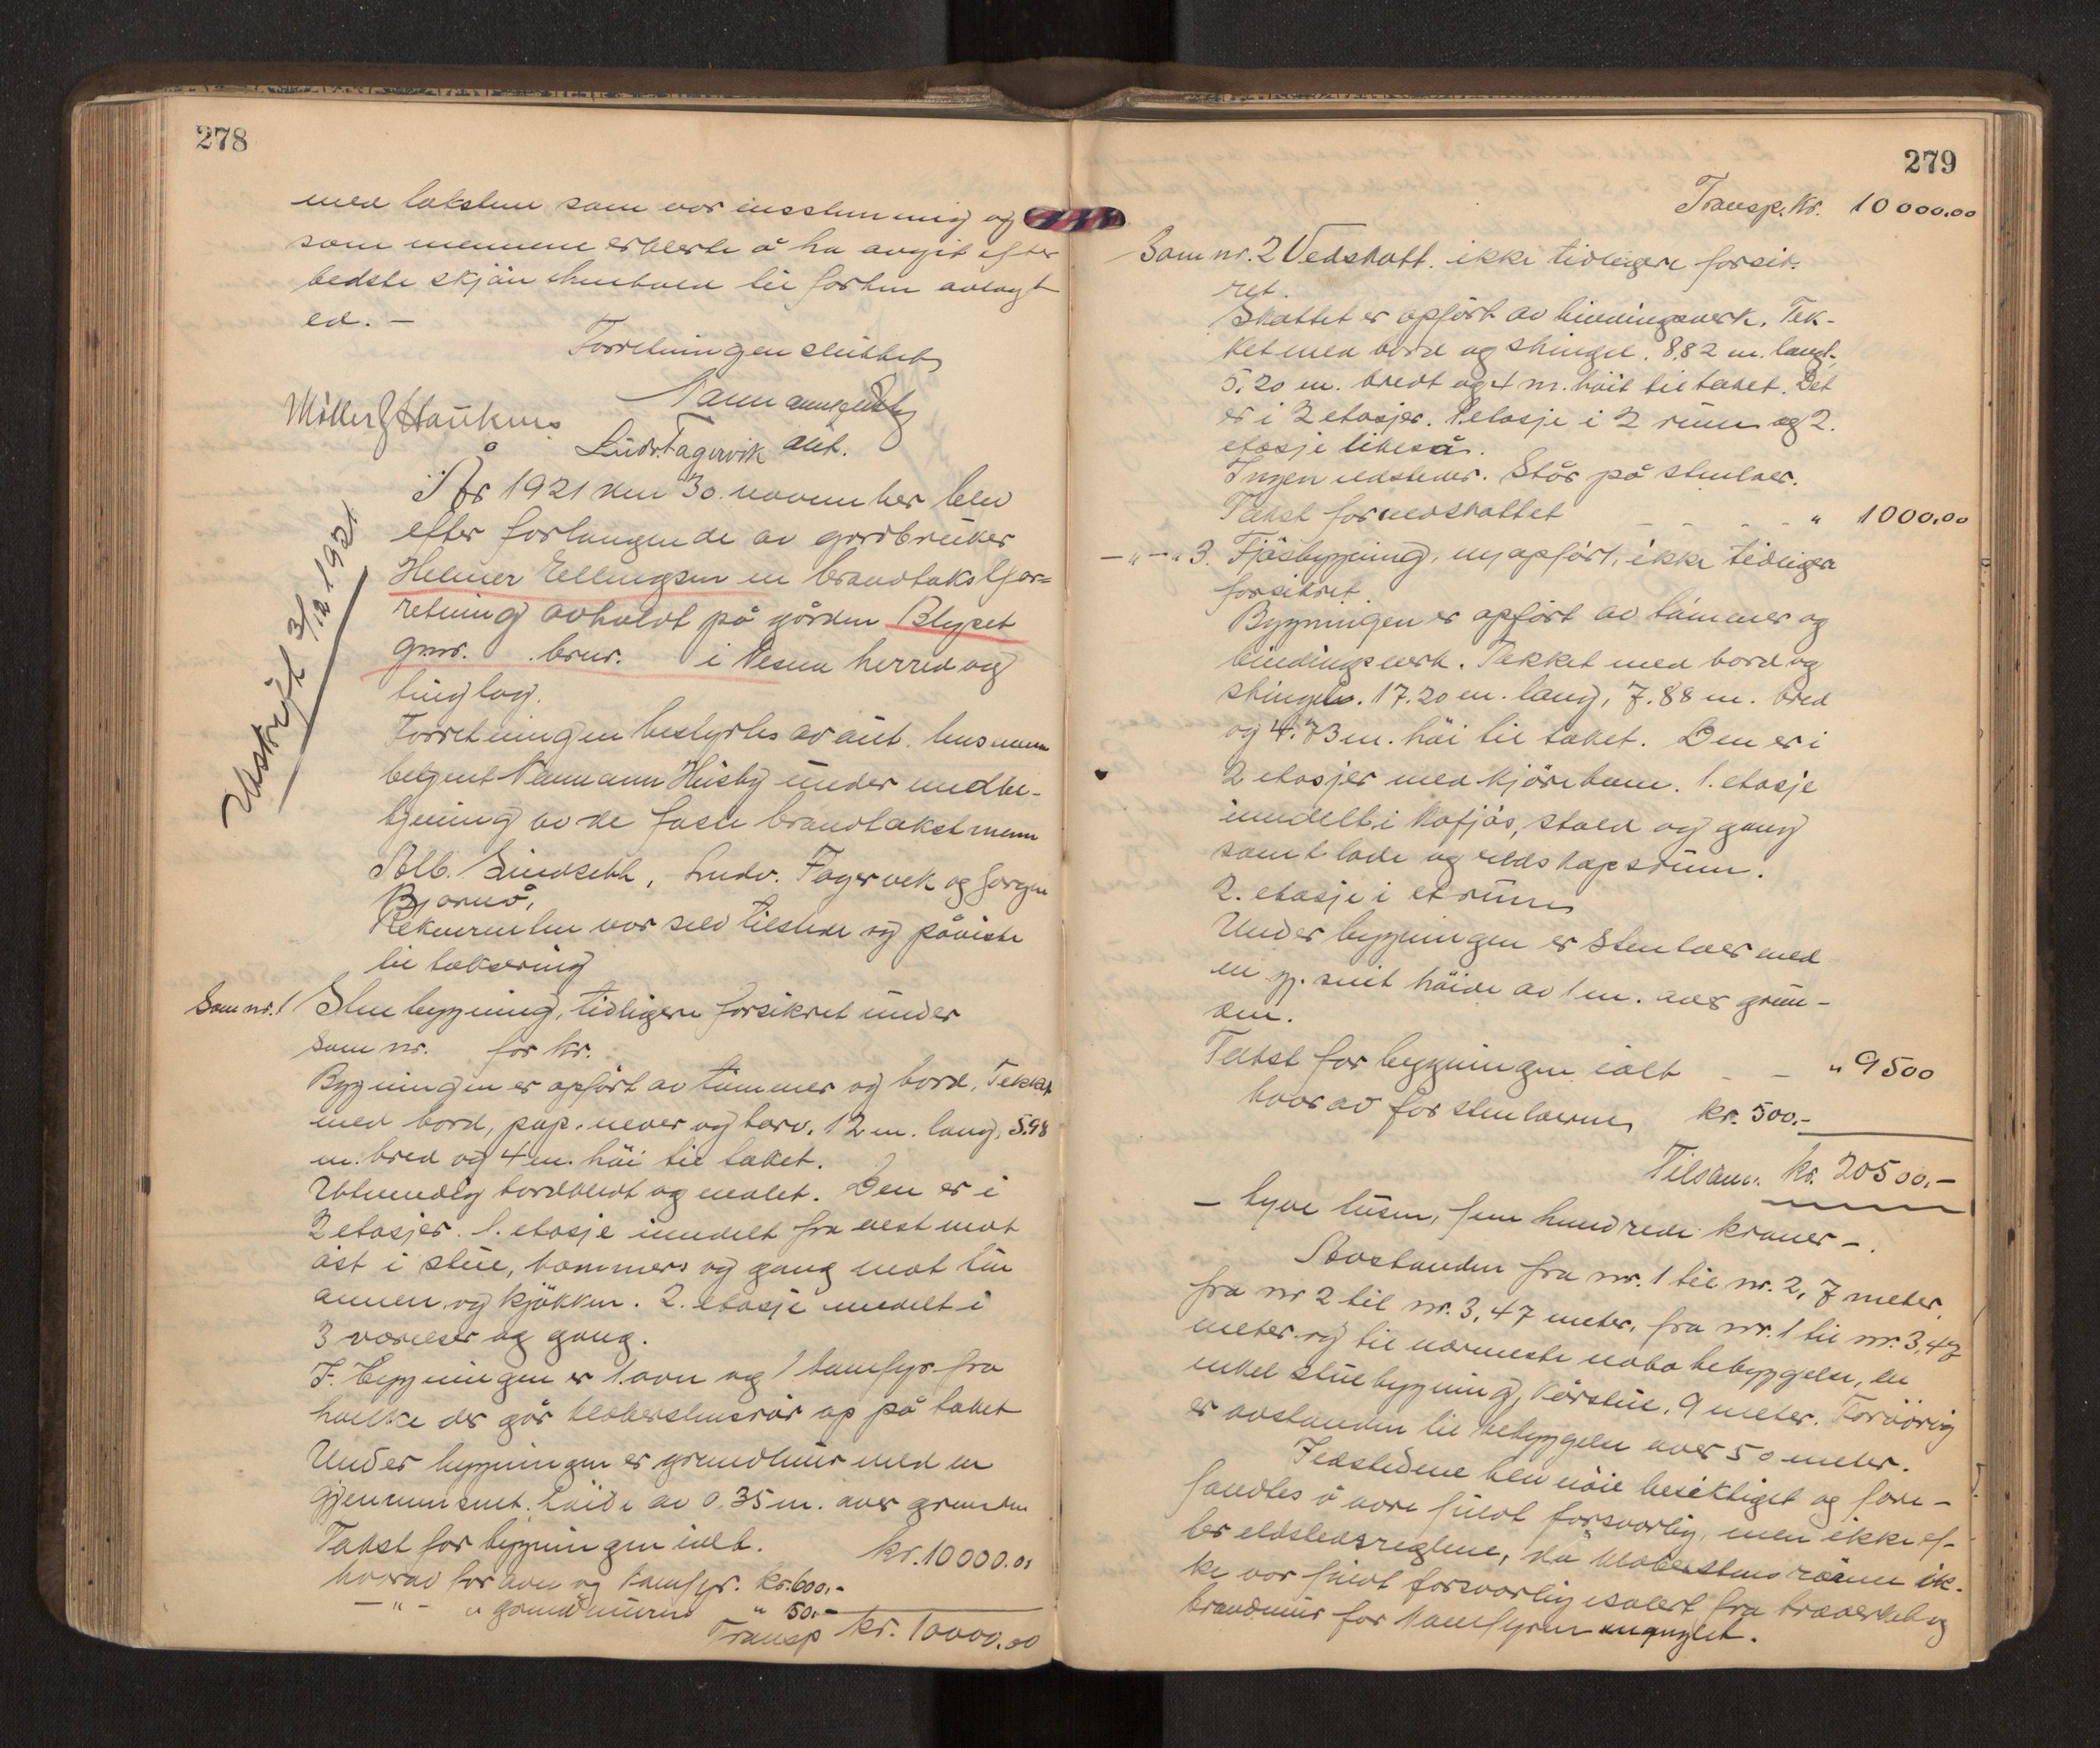 278
med taksten som var enstemmig og
som mennene erklærte å ha avgit efter
bedste skjøn i henhold til forhen avlagt
ed. —
Forretningen sluttet
Namann Husby
Møller J Hauknes
Ludv. Fagervik Alb.
Utskrift 3/12 1921
I År 1921 den 30. november blev
efter forlangende av gårdbruker
Helmer Ellingsen en brandtakstfor=
retning avholdt på gården Blyset
gnr. brnr. i Nesna herred og
tinglag.
Forretningen bestyrtes av aut. lensmann
betjent Namann Husby under medbe-
tjening av de faste brandtakstmenn
Alb. Lindseth, Ludv. Fagervik og Jørgen
Bjørnå,
Rekvirenten var selv tilstede og påviste
til taksering
Som nr. 1 Stuebygning, tidligere forsikret under
Som nr. for kr.
Bygningen er opført av tømmer og bord, Tekket
med bord, pap, never og torv. 12 m. lang, 5.98
m. bred og 4 m. høi til taket.
Utvendig bordklædt og malet. Den er i
2 etasjer. 1. etasje inndelt fra vest mot
øst i stue, kammers og gang mot
annen og kjøkken. 2. etasje inndelt i
3 værelser og gang.
I bygningen er 1 ovn og 1 komfyr fra
hvilke der går klebersstensrør op på taket
Under bygningen er grundmur med en
gjennemsnit. høide av 0.35 m. over grunden
Takst for bygningen ialt. kr. 10000.00
hvorav for ovn og komfyr. kr. 600.-
— " — " grundmuren " 50.-
Transp kr. 10000.00
279
Transp. kr. 10000.00
Som nr. 2 Vedskott. ikke tidligere forsik-
ret.
Skottet er opført av bindingsverk. Tek-
ket med bord og shingel. 8.82 m. langt,
5.20 m. bredt og 4 m. høit til taket. Det
er i 2 etasjer. 1. etasje i 2 rum og 2.
etasje likeså.
Ingen ildsteder. Står på stenlaer.
Takst for vedskottet — — — " 1000.00
— " — " 3. Fjøsbygning, nyopført, ikke tidligere
forsikret.
Bygningen er opført av tømmer og
bindingsverk. Tekket med bord og
shingels. 17.20 m. lang, 7.88 m. bred
og 4.73 m. høi til taket. Den er i
2 etasjer med kjørebane. 1. etasje
inndelt i kufjøs, stald og gang
samt lade og redskapsrum.
2. etasje i et rum
Under bygningen er stenlaer med
en gj. snit høide av 1 m. over grun-
den.
Takst for bygningen ialt — — " 9500
hvorav for stenlaerne kr. 500.-
Tilsam. kr. 20500.-
— tyve tusen, fem hundrede kroner —.
Avstanden fra nr. 1 til nr. 2, 7 meter,
fra nr 2 til nr. 3, 47 meter, fra nr. 1 til nr. 3, 47
meter og til nærmeste nabobebyggelse, en
enkel stuebygning, Kårstue, 9 meter. Forøvrig
er avstanden til bebyggelse over 50 meter.
Ildstedene blev nøie besiktiget og fore-
fandtes å være fuldt forsvarlig, men ikke ef-
ter ildstedsreglene, da kleberstensrørene ik-
ke var fuldt forsvarlig isolert fra træverket og
brandmur for komfyren manglet.